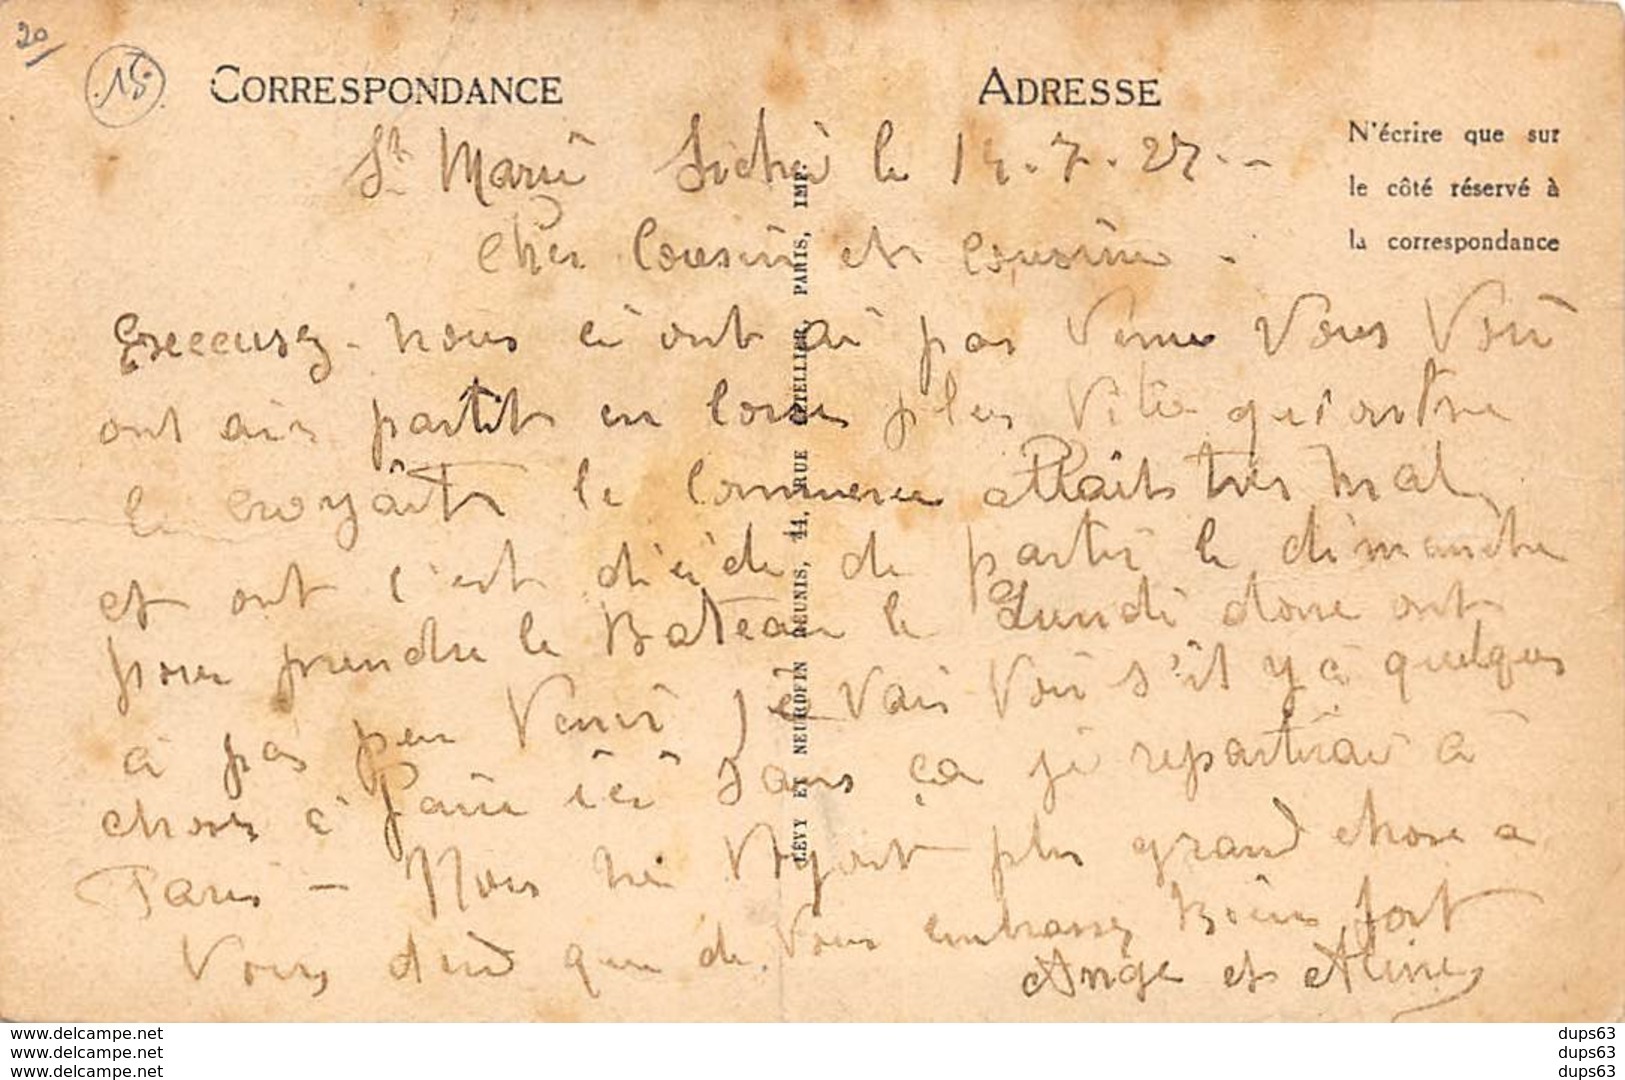 20
15
CORRESPONDANCE
ADRESSE
N'écrire que sur
le côté réservé à
la correspondance
St Marie Siché le 14.7.27.-
Cher Cousin et Cousine.
Exccusez-nous ci ont ai pas venu Vous Voir
ont ais partit en Corse plus Vite qu'ont ne
le croyait le Commerce allait tres mal,
et ont c'est décidé de partir le dimanche
pour prendre le Bateau le Lundi donc ont
à pas peu Venir je vais Voir s'il y à quelques
choses à faire ici Sans ça je repartirai à
Paris - Nous ne Voyont plus grand chose a
Vous dire que de Vous embrassez Bien fort
Ange et Aline
LÉVY ET NEURDEIN RÉUNIS, 44, RUE LETELLIER, PARIS, IMP.
www.delcampe.net
www.delcampe.net
www.delcampe.net
dups63
dups63
dups63